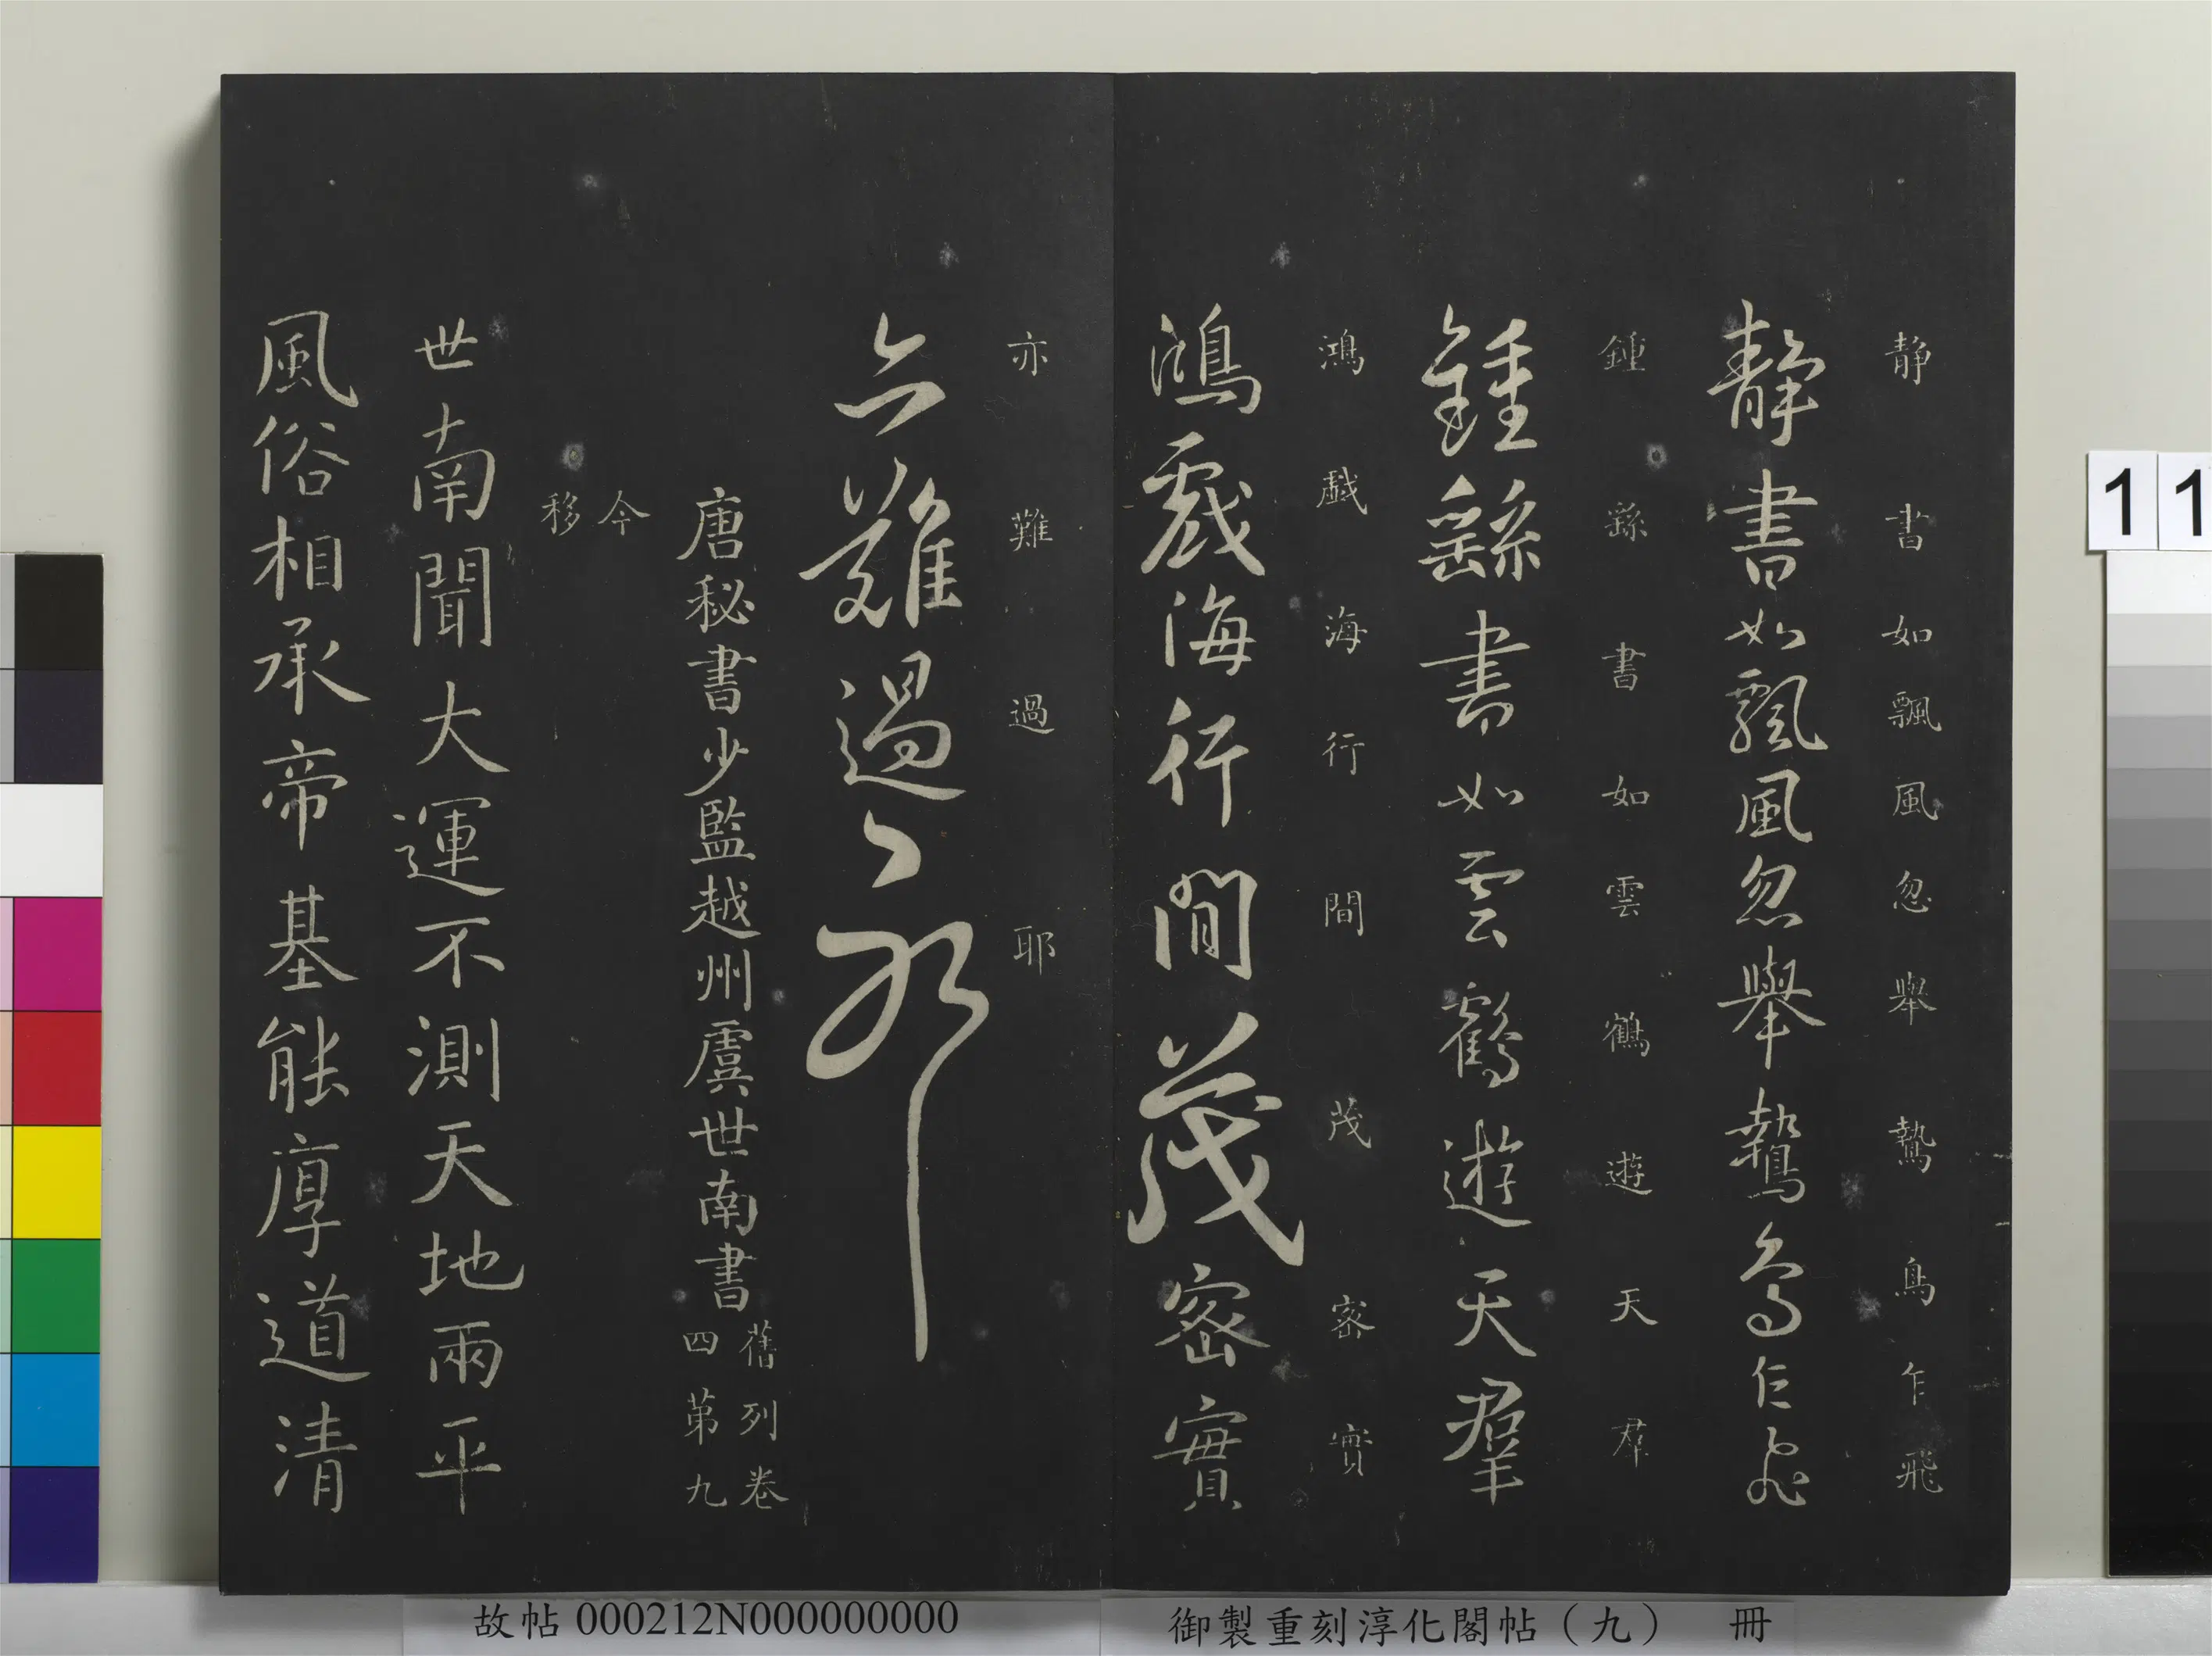 静書如飄風忽舉鷙鳥乍飛
静書如飄風忽舉鷙鳥乍飛
鍾繇書如雲鶴遊天羣
鍾繇書如雲鶴遊天群
鴻戲海行間茂密實
鴻戲海行間茂密實
亦難過耶
亦難過耶
唐秘書少監越州虞世南書
舊列卷
四第九
今
移
世南聞大運不測天地兩平
風俗相承帝基能厚道清
11
故帖000212N000000000
御製重刻淳化閣帖（九） 冊